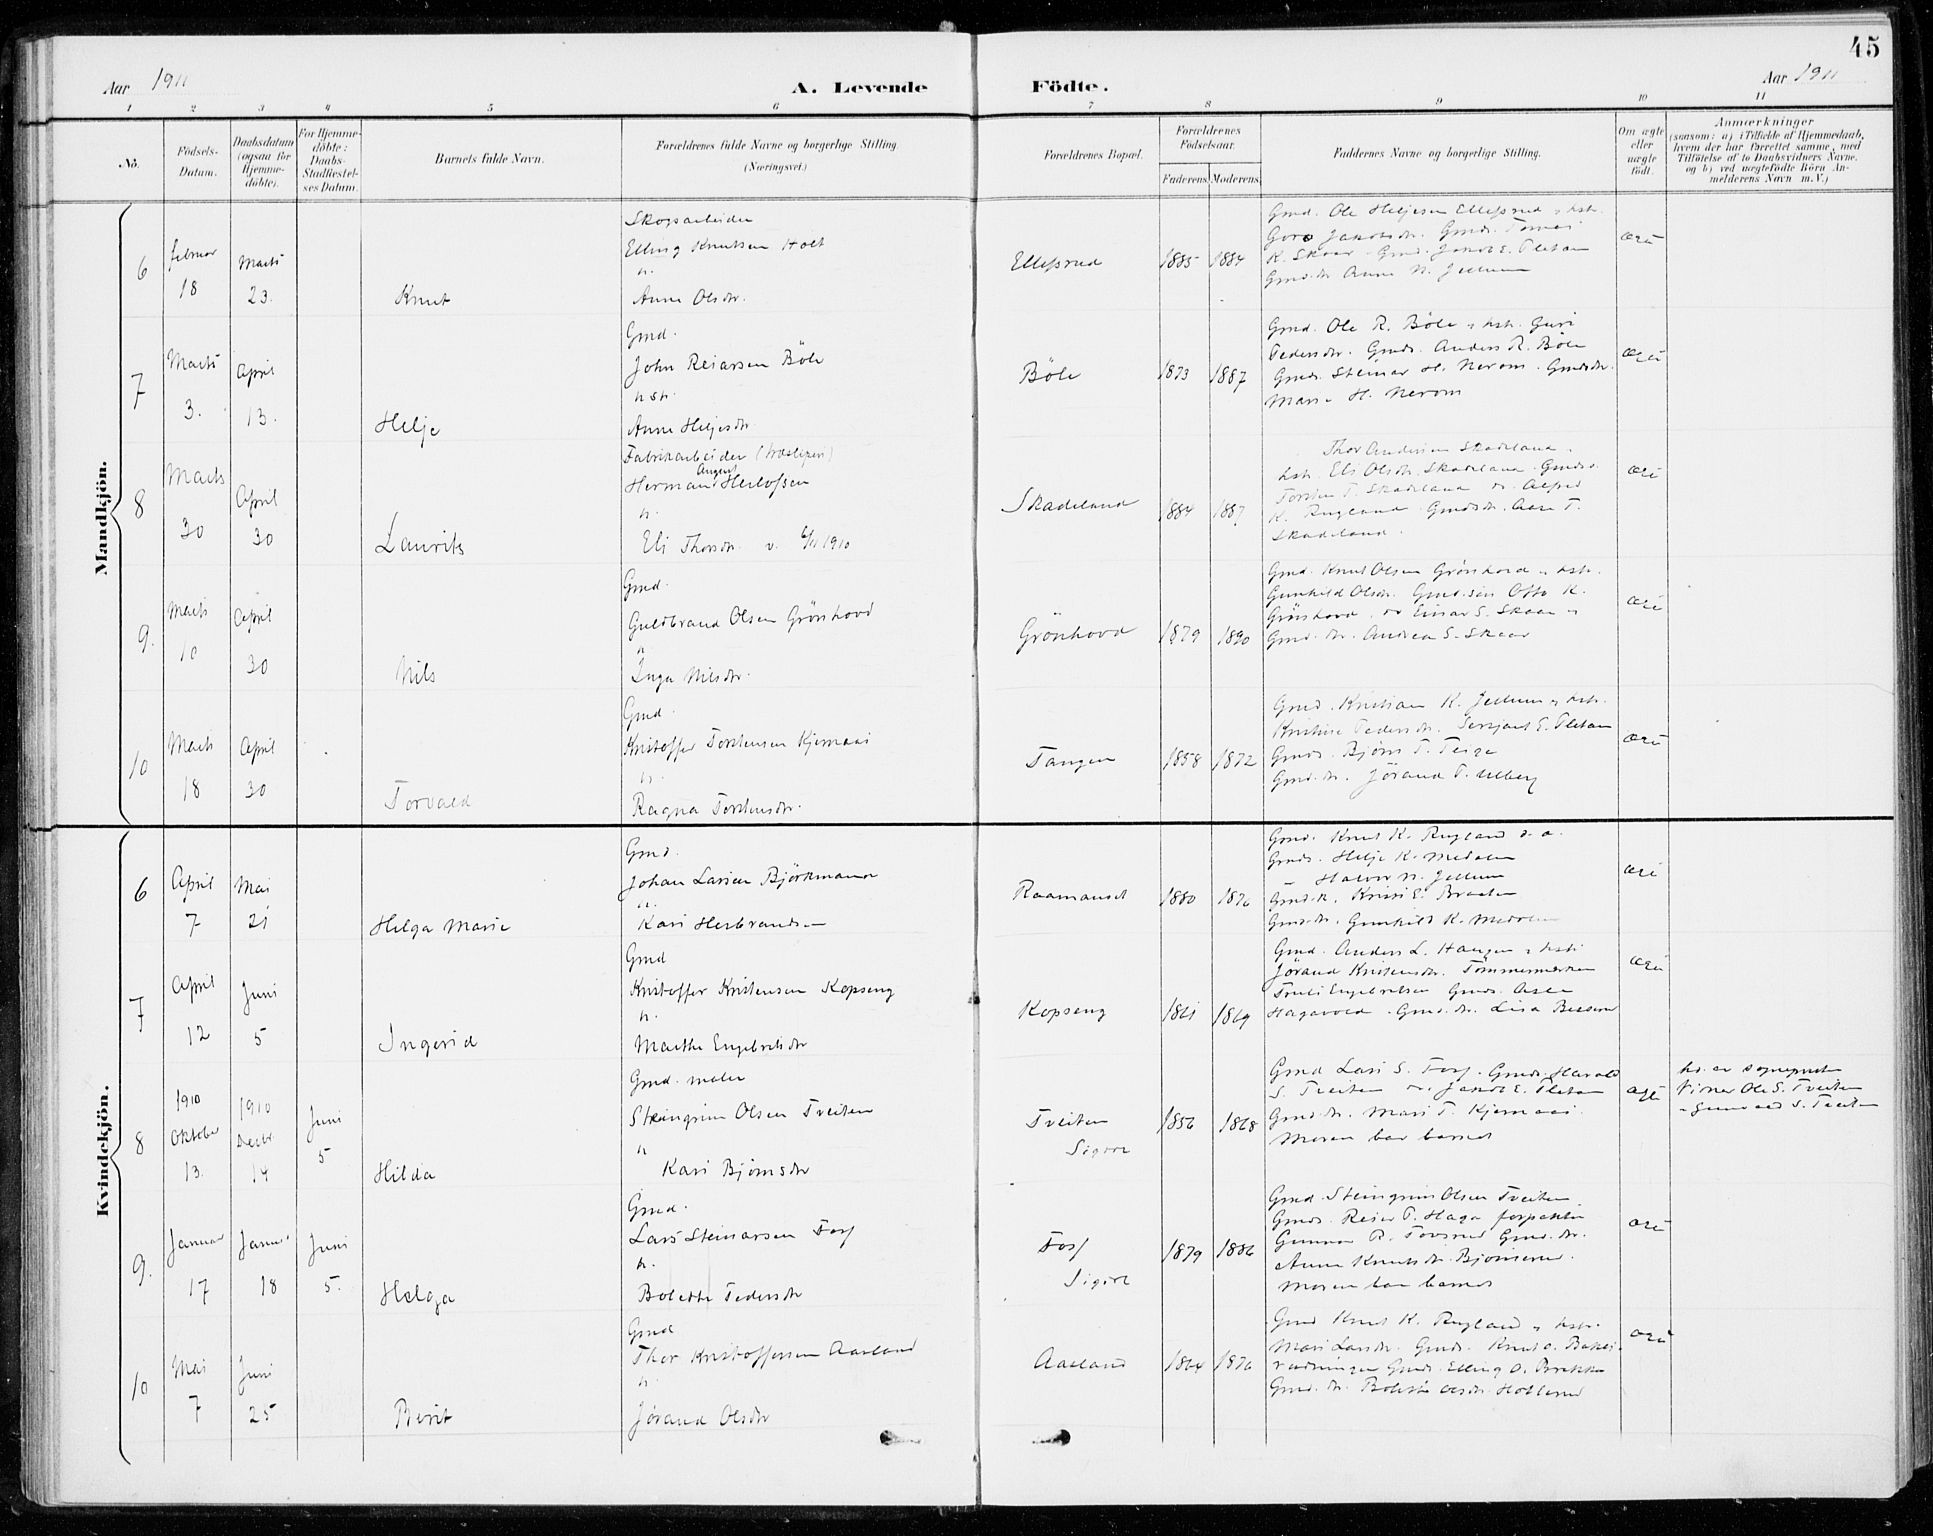 45
Aar 1911
A. Levende Födte.
Aar 1911
1 2 3 4 5 6 7 8 9 10 11
No.
Födsels-
Datum.
Daabsdatum
(ogsaa for
Hjemme-
döbte).
For Hjemme-
döbte:
Daabs-
Stadfæstel-
ses Datum.
Barnets fulde Navn.
Forældrenes fulde Navne og borgerlige Stilling.
(Næringsvei.)
Forældrenes Bopæl.
Forældrenes
Födselsaar.
Faderens Moderens
Faddernes Navne og borgerlige Stilling.
Om ægte
eller
uægte
født.
Anmærkninger
(saasom: a) i Tilfælde af Hjemmedaab,
hvem der har forrettet samme, med
Tilföielse af to Daabsvidners Navne,
og b) ved uægtefödte Börn An-
melderens Navn m. V.)
Mandkjön.
6
Februar
18
Marts
23.
Knut
Skogsarbeider
Elling Knutsen Holt
h.
Anne Olsdtr.
Ellefsrud
1885 1884
Gmd. Ole Heljesen Ellefsrud & hstr.
Goro Jakobsdtr. Gmds.
K. Skaar Gmds. Jakob E. Fletan
Gmds.dtr. Anne N. Jellum
ægte
7
Marts
3.
April
13.
Helje
Gmd.
John Reiarsen Böle
hstr.
Anne Heljesdtr.
Böle
1873 1887
Gmd. Ole R. Böle & hstr. Guri
Pedersdtr. Gmds. Anders R. Böle
Gmds. Steinar H. Nerom. Gmdsdtr.
Mari H. Nerom
ægte
8
Marts
30
April
30
Laurits
Fabrikarbeider (træsliperi)
August
Herman Herlofsen
h.
Eli Thorsdtr. v. 6/11 1910
Skadeland
1884 1887
Thor Andersen Skadeland &
hstr. Eli Olsdtr. Skadeland. Gmds.
Torsten T. Skadeland og Alfred
K. Rugland. Gmdsdtr. Aase T.
Skadeland.
ægte
9.
Marts
10
April
30
Nils
Gmd.
Guldbrand Olsen Grönhovd
h
Inga Nilsdtr.
Grönhovd
1879 1890
Gmd. Knut Olsen Grönhovd & hstr.
Gunhild Olsdtr. Gmd.sön Otto K.
Grönhovd og Einar S. Skaar &
Gmd. dtr. Andrea S. Skaar
ægte
10
Marts
18
April
30
Torvald
Gmd.
Kristoffer Torstensen Kjemaas
h.
Ragna Torstensdtr.
Tangen
1858 1872
Gmd. Kristian K. Jellum & hstr.
Kristine Pedersdtr. Sersjant E. Fletan
Gmds. Björn T. Teige
Gmd.dtr. Jörand T. Ulberg
ægte
Kvindekjön.
6
April
7
Mai
21
Helga Marie
Gmd.
Johan Larsen Björkmann
h.
Kari Herbrandsen
Raamanset
1880 1876
Gmd. Knut K. Rugland s. a.
Gmds. Helje K. Medalen
Halvor N. Jellum
Gmd.dtr. Kristi E. Braaten
Gmd.dtr. Gunhild K. Medalen
ægte
7
April
12
Juni
5
Ingerid
Gmd
Kristoffer Kristensen Kopseng
h.
Marthe Engebretsdtr
Kopseng
1861 1869
Gmd. Anders L. Haugen & hstr.
Jörand Kristensdtr. Tömmermerker
Truls Engebretsen Gmds. Asle
Hagavold. Gmd.dtr. Lisa Besserud
ægte
8
1910
Oktober
13.
1910
Decbr.
14
Juni
5
Hilda
Gmd. maler
Steingrim Olsen Tveiten
h
Kari Björnsdtr
Tveiten
Sigdal
1856 1868
Gmd Lars S. Fosf. Gmds. Harald
S. Tveiten og Jakob E. Fletan
Gmd.dtr. Mari T. Kjemaas.
Moren bar barnet
ægte
hd. av sognepresten
Vidner Ole S. Tveiten
& Gunvald S. Tveiten
9.
Januar
17
Januar
18
Juni
5.
Helga
Gmd.
Lars Steinarsen Fosf
h.
Bolette Pedersdtr
Fosf
Sigdal
1879 1886
Gmd. Steingrim Olsen Tveiten
Gmds. Reier T. Haga forpakter
Gunnar R. Tovsrud Gmd. dtr.
Anne Knutsdtr. Björnerud.
Moren bar barnet
ægte
10
Mai
7
Juni
25
Berit
Gmd
Thor Kristoffersen Aasland
h.
Jörand Olsdtr
Aasland
1864 1870
Gmd Knut K. Rugland & hstr.
Mari Larsdtr. Gmds. Knut O. Bakke
Gmds. Elling O. Brekke
Gmd. dtr. Bolette Olsdtr. Hollerud
ægte